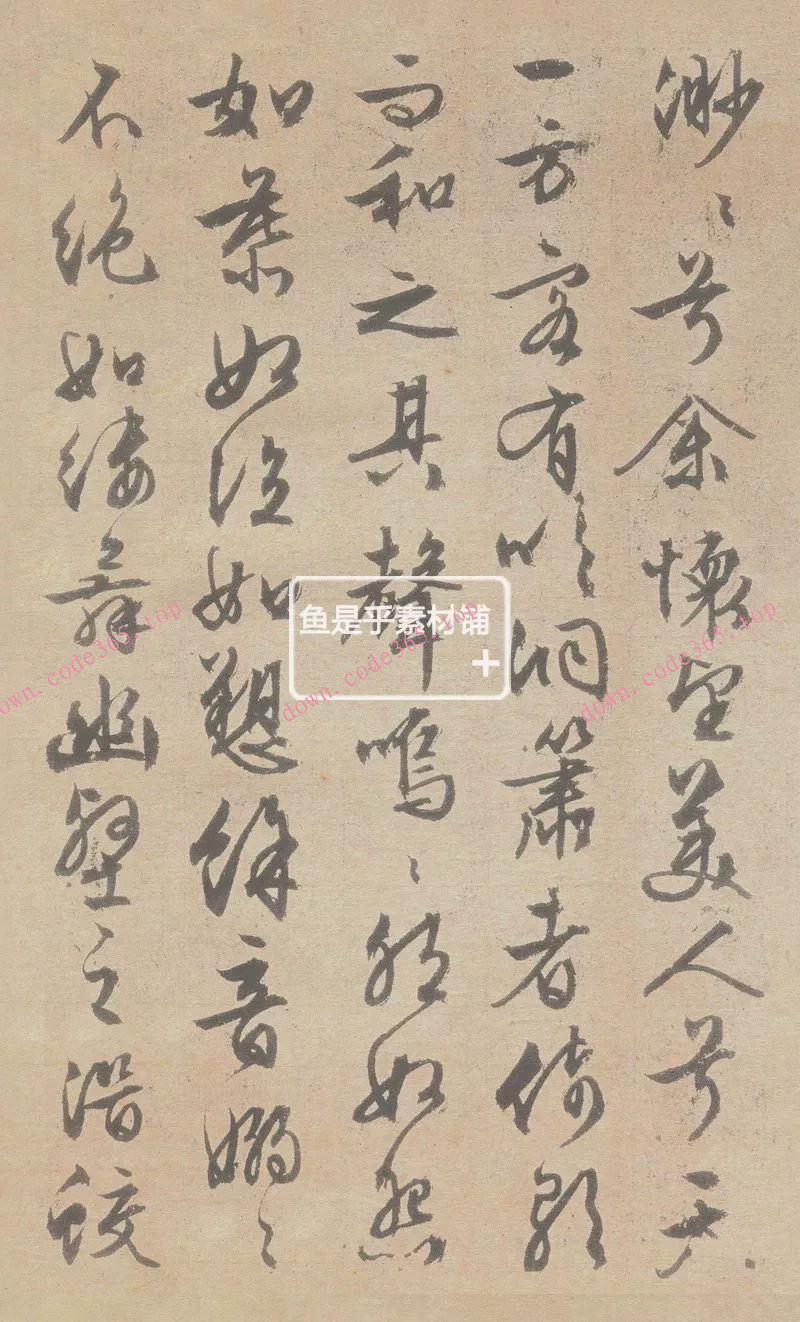 渺〻兮余懷望美人兮天
一方客有吹洞簫者倚歌
而和之其聲嗚〻然如怨
如慕如泣如愬餘音嫋〻
不絶如縷舞幽壑之潛蛟
鱼是乎素材铺
down.code365.top
down.code365.top
down.code365.top